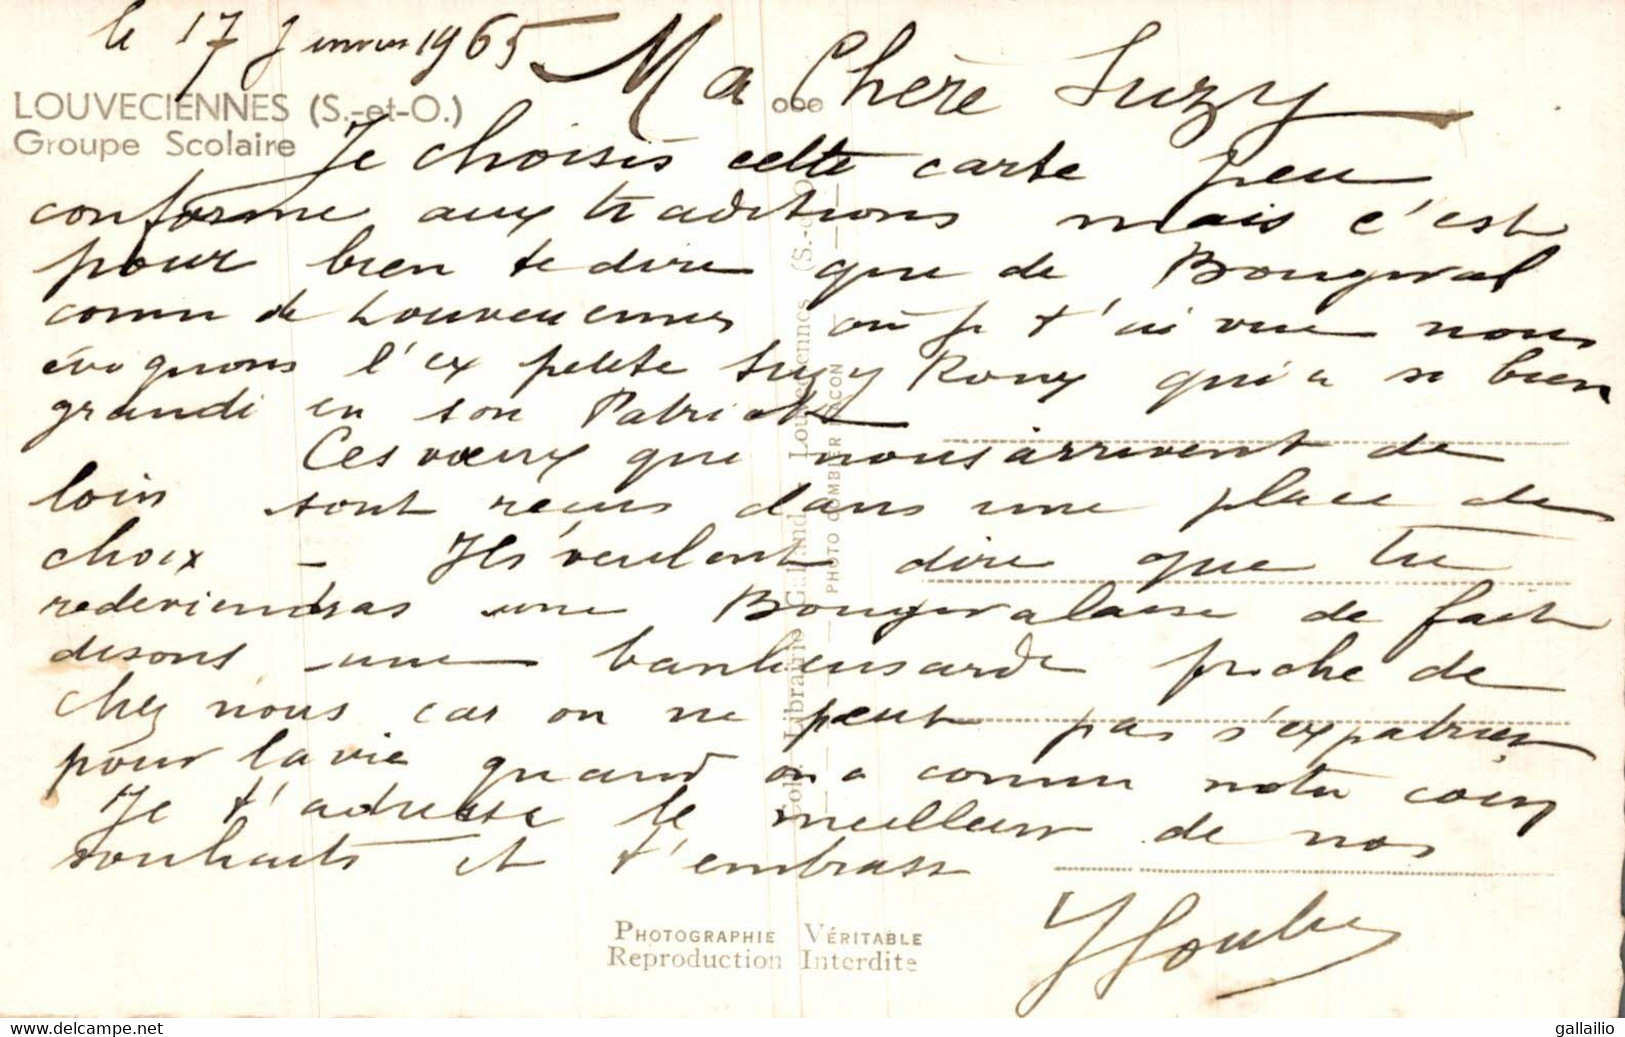 le 17 Janvier 1965
Ma Chère Suzy
LOUVECIENNES (S.-et-O.)
Groupe Scolaire
Je choisis cette carte peu
conforme aux traditions mais c'est
pour bien te dire que de Bougival
comme de Louveciennes où je t'ai vue nous
évoquons l'ex petite Suzy Roux qui a si bien
grandi en son Patrick
Ces vœux que nous arrivent de
loin sont reçus dans une place de
choix - Ils veulent dire que tu
redeviendras une Bougivalaise de fait
disons une banlieusarde proche de
chez nous car on ne peut pas s'expatrier
pour la vie quand on a connu notre coin
Je t'adresse le meilleur de nos
souhaits et t'embrasse
PHOTOGRAPHIE VÉRITABLE
Reproduction Interdite
Louveciennes (S.-et-O.)
PHOTO COMBIER MACON
delcampe.net
gallailio